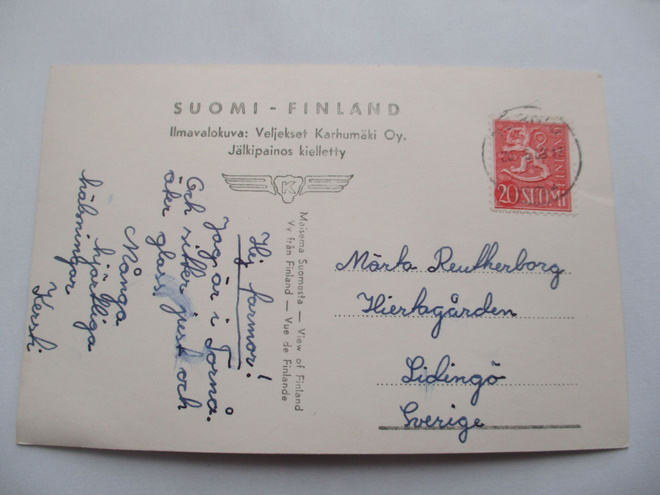 SUOMI - FINLAND
Ilmavalokuva: Veljekset Karhumäki Oy.
Jälkipainos kielletty
K
20 SUOMI
FINLAND
Maisema Suomosta — View of Finland
Vy från Finland — Vue de Finlande
Hej farmor!
Jag är i Torнå.
Och sitter just och
äter glass.
Många
hjärtliga
hälsningar
Kersti
Märta Reutherborg
Hiertagården
Lidingö
Sverige